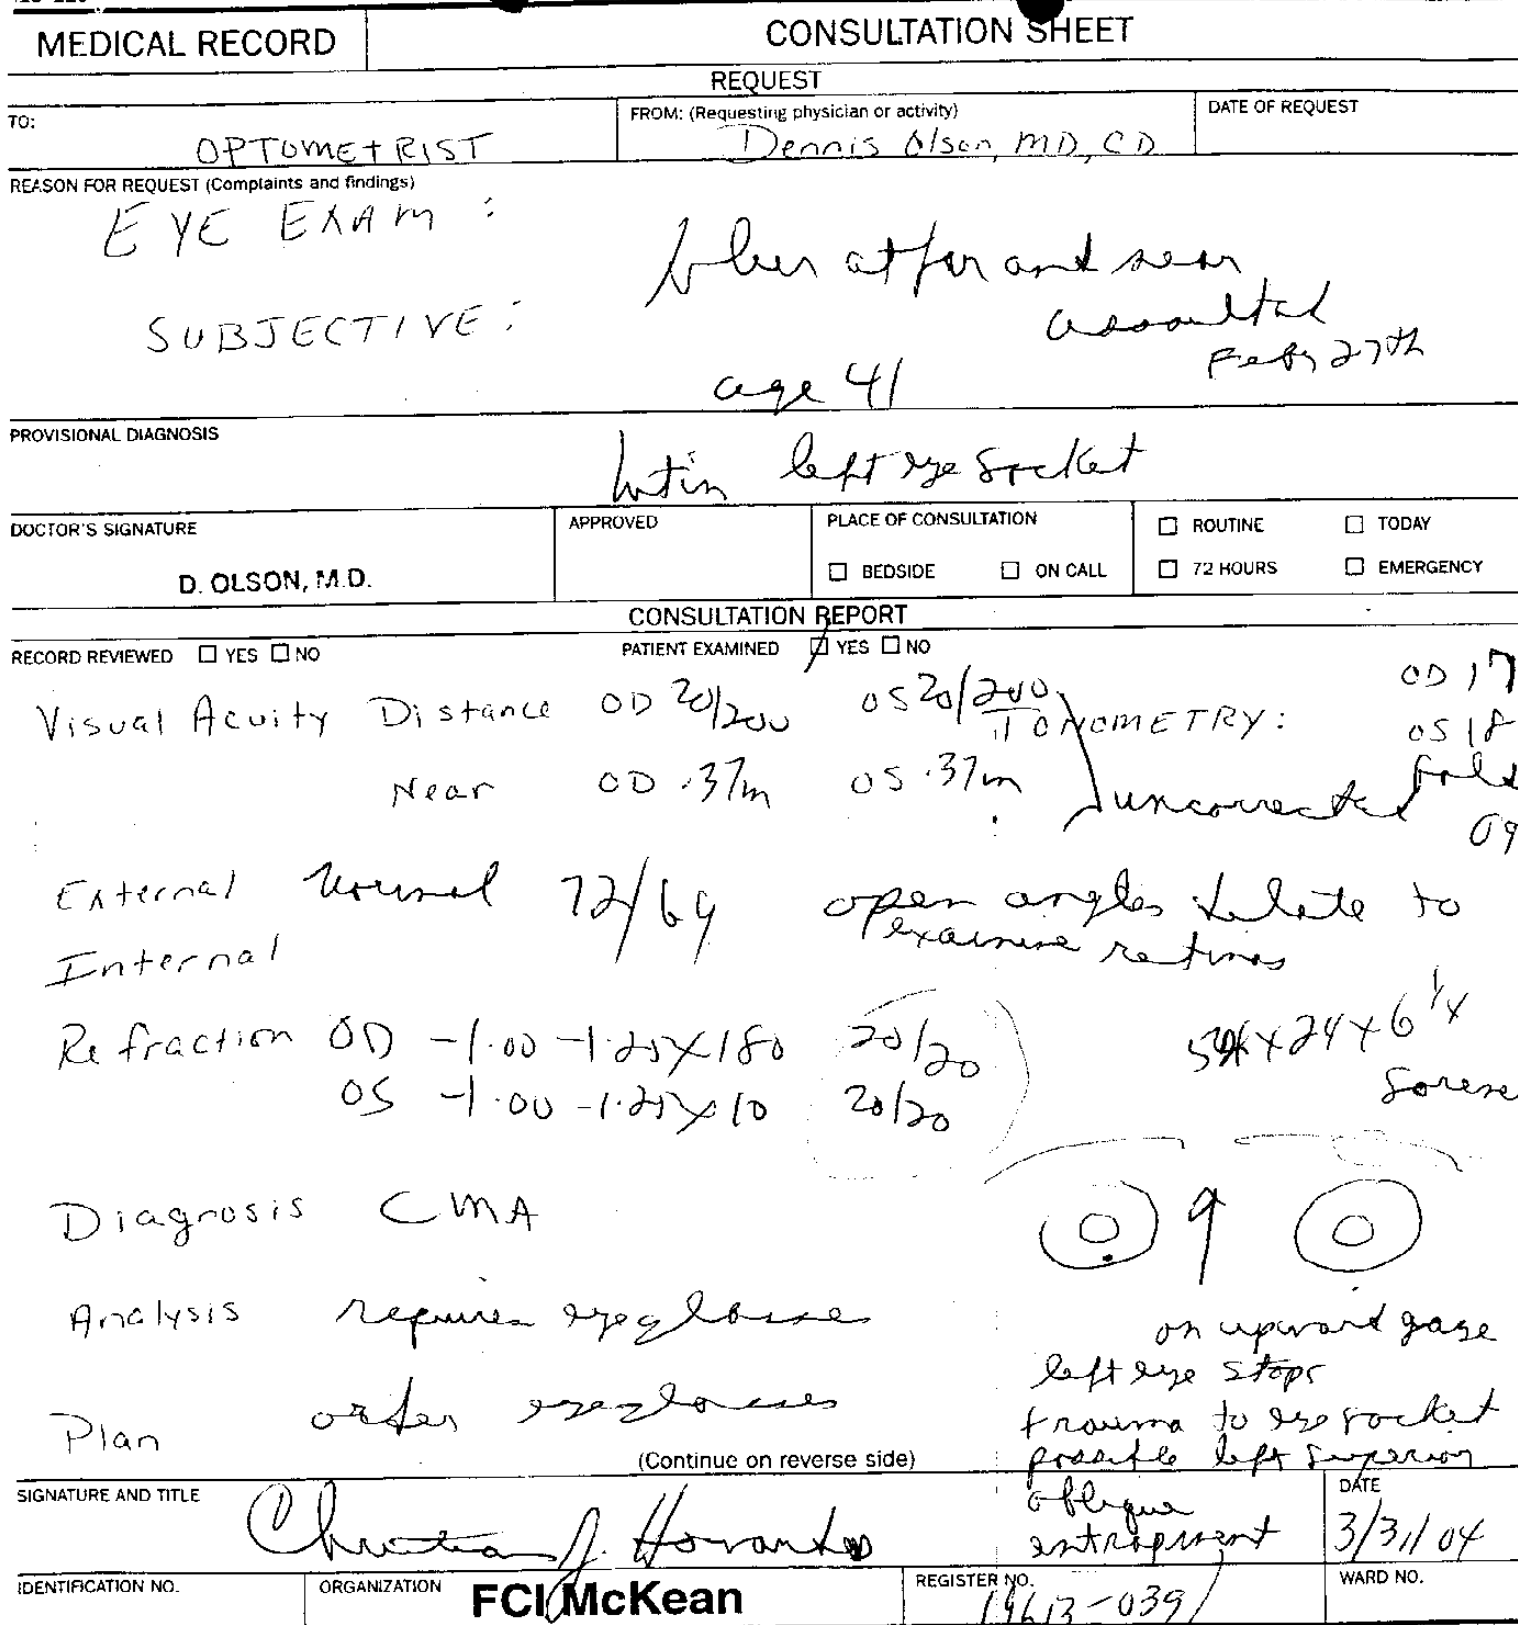 MEDICAL RECORD
CONSULTATION SHEET
REQUEST
TO:
OPTOMETRIST
FROM: (Requesting physician or activity)
Dennis Olson, MD, CD
DATE OF REQUEST
REASON FOR REQUEST (Complaints and findings)
EYE EXAM :
blur at far and near
SUBJECTIVE :
assaulted
Feb 27th
age 41
PROVISIONAL DIAGNOSIS
left eye socket
DOCTOR'S SIGNATURE
D. OLSON, M.D.
APPROVED
PLACE OF CONSULTATION
BEDSIDE ON CALL
ROUTINE TODAY
72 HOURS EMERGENCY
CONSULTATION REPORT
RECORD REVIEWED YES NO
PATIENT EXAMINED YES NO
Visual Acuity Distance OD 20/200 OS 20/200
TONOMETRY: OD 17
OS 18
Near OD .37m OS .37m
uncorrected
External Normal 72/69 open angles dilate to
examine retinas
Internal
Refraction OD -1.00 -1.25 X 180 20/20
OS -1.00 -1.25 X 10 20/20
X 24 X 6 1/4
Diagnosis CMA
Analysis requires eyeglasses
Plan order eyeglasses
on upward gaze
left eye stops
trauma to eye socket
possible left superior
oblique
entrapment
(Continue on reverse side)
SIGNATURE AND TITLE
DATE
3/31/04
IDENTIFICATION NO.
ORGANIZATION
FCI McKean
REGISTER NO.
19613-039
WARD NO.